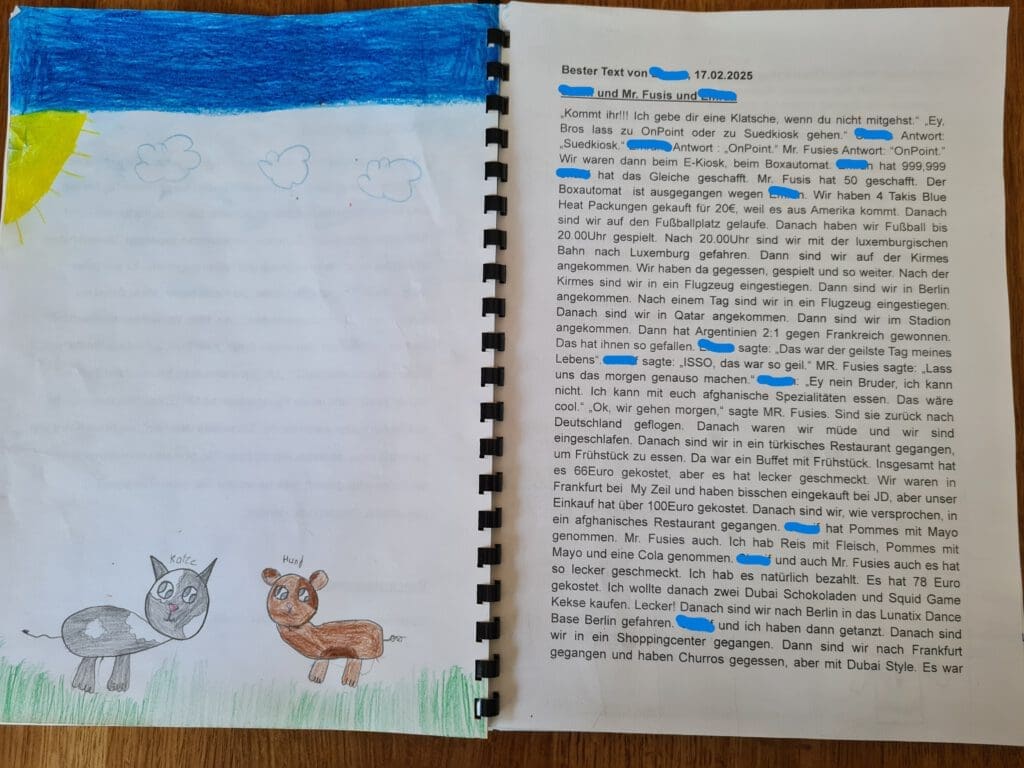 Katze
Hund
Bester Text von , 17.02.2025
und Mr. Fusis und
„Kommt ihr!!! Ich gebe dir eine Klatsche, wenn du nicht mitgehst.“ „Ey,
Bros lass zu OnPoint oder zu Suedkiosk gehen.“ Antwort:
„Suedkiosk.“ Antwort : „OnPoint.“ Mr. Fusies Antwort: “OnPoint.”
Wir waren dann beim E-Kiosk, beim Boxautomat. hat 999,999
hat das Gleiche geschafft. Mr. Fusis hat 50 geschafft. Der
Boxautomat ist ausgegangen wegen . Wir haben 4 Takis Blue
Heat Packungen gekauft für 20€, weil es aus Amerika kommt. Danach
sind wir auf den Fußballplatz gelaufe. Danach haben wir Fußball bis
20.00Uhr gespielt. Nach 20.00Uhr sind wir mit der luxemburgischen
Bahn nach Luxemburg gefahren. Dann sind wir auf der Kirmes
angekommen. Wir haben da gegessen, gespielt und so weiter. Nach der
Kirmes sind wir in ein Flugzeug eingestiegen. Dann sind wir in Berlin
angekommen. Nach einem Tag sind wir in ein Flugzeug eingestiegen.
Danach sind wir in Qatar angekommen. Dann sind wir im Stadion
angekommen. Dann hat Argentinien 2:1 gegen Frankreich gewonnen.
Das hat ihnen so gefallen. sagte: „Das war der geilste Tag meines
Lebens“. sagte: „ISSO, das war so geil.“ MR. Fusies sagte: „Lass
uns das morgen genauso machen.“ : „Ey nein Bruder, ich kann
nicht. Ich kann mit euch afghanische Spezialitäten essen. Das wäre
cool.“ „Ok, wir gehen morgen,“ sagte MR. Fusies. Sind sie zurück nach
Deutschland geflogen. Danach waren wir müde und wir sind
eingeschlafen. Danach sind wir in ein türkisches Restaurant gegangen,
um Frühstück zu essen. Da war ein Buffet mit Frühstück. Insgesamt hat
es 66Euro gekostet, aber es hat lecker geschmeckt. Wir waren in
Frankfurt bei My Zeil und haben bisschen eingekauft bei JD, aber unser
Einkauf hat über 100Euro gekostet. Danach sind wir, wie versprochen, in
ein afghanisches Restaurant gegangen. hat Pommes mit Mayo
genommen. Mr. Fusies auch. Ich hab Reis mit Fleisch, Pommes mit
Mayo und eine Cola genommen. und auch Mr. Fusies auch es hat
so lecker geschmeckt. Ich hab es natürlich bezahlt. Es hat 78 Euro
gekostet. Ich wollte danach zwei Dubai Schokoladen und Squid Game
Kekse kaufen. Lecker! Danach sind wir nach Berlin in das Lunatix Dance
Base Berlin gefahren. und ich haben dann getanzt. Danach sind
wir in ein Shoppingcenter gegangen. Dann sind wir nach Frankfurt
gegangen und haben Churros gegessen, aber mit Dubai Style. Es war